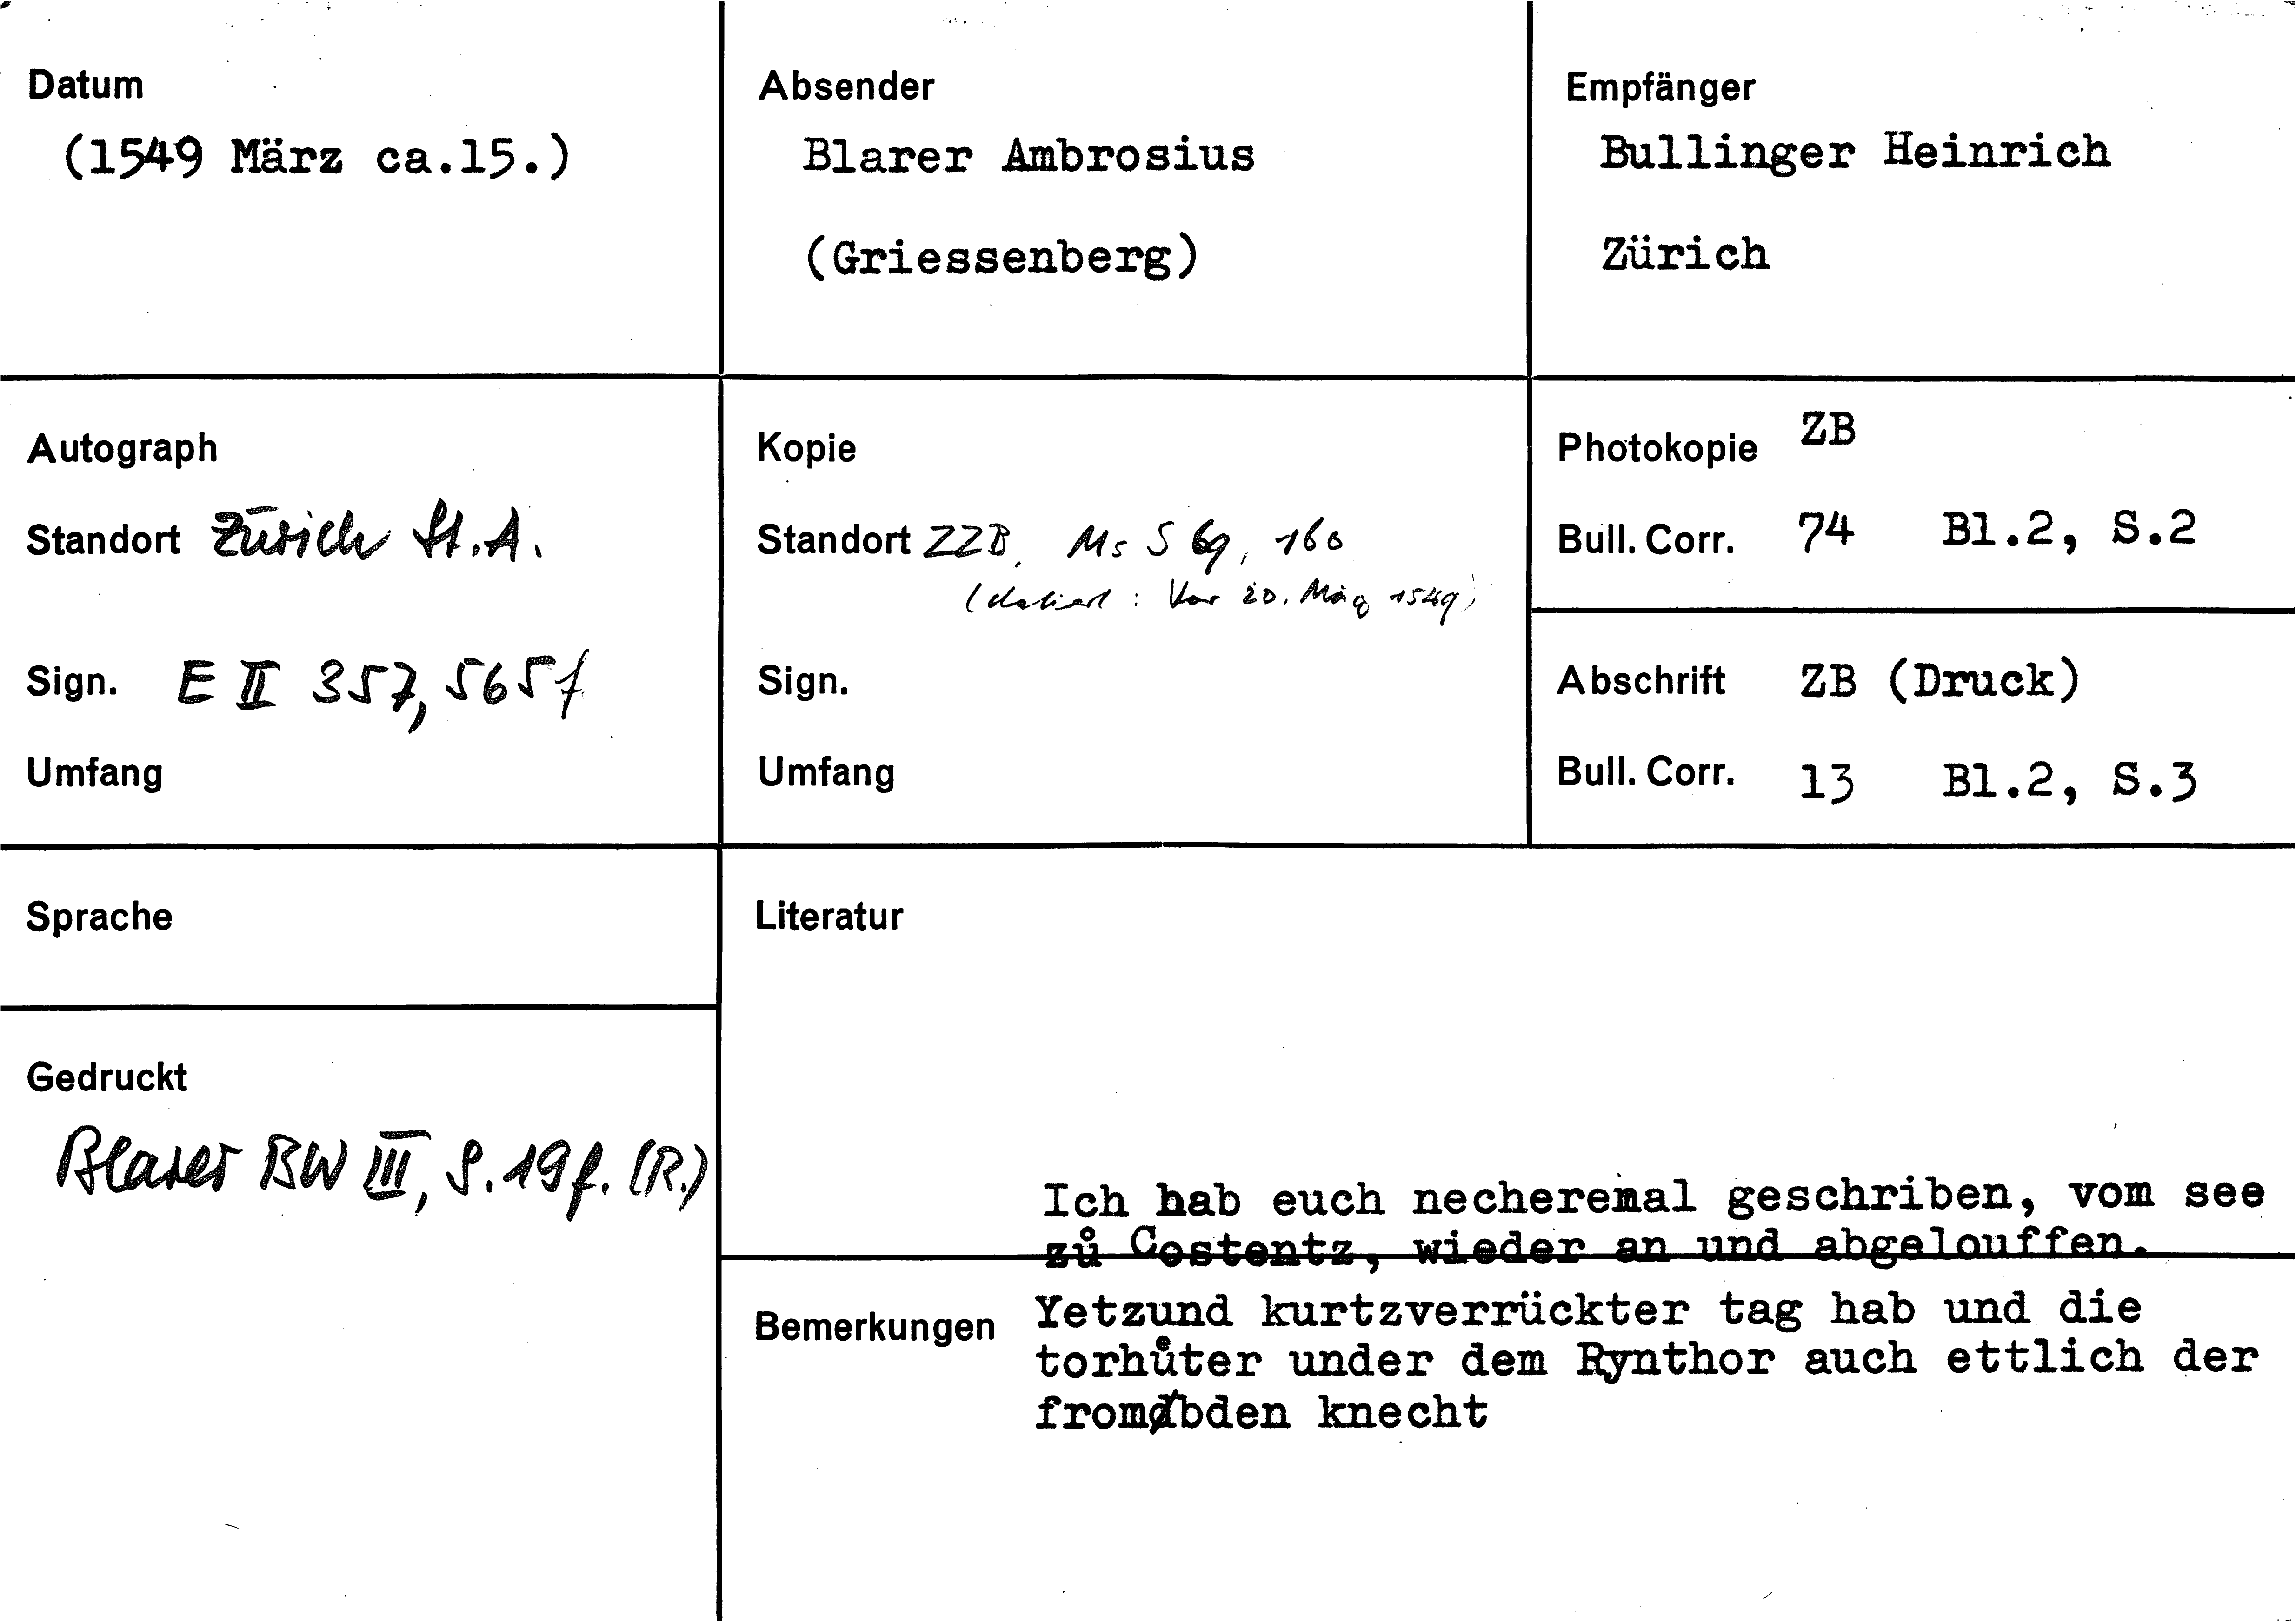 Datum
(1549 März ca.15.)
Absender
Blarer Ambrosius
(Griessenberg)
Empfänger
Bullinger Heinrich
Zürich
Autograph
Standort Zürich St.A.
Sign. E II 357, 565f
Umfang
Kopie
Standort ZZB, Ms S 69, 160
(datiert: Vor 20. März 1549)
Sign.
Umfang
Photokopie ZB
Bull. Corr. 74 Bl.2, S.2
Abschrift ZB (Druck)
Bull. Corr. 13 Bl.2, S.3
Sprache
Gedruckt
Blarer BW III, S. 19f. (R.)
Literatur
Ich hab euch necheremal geschriben, vom see
zů Costentz, wieder an und abgelouffen.
Bemerkungen Yetzund kurtzverrückter tag hab und die
torhůter under dem Rynthor auch ettlich der
knecht